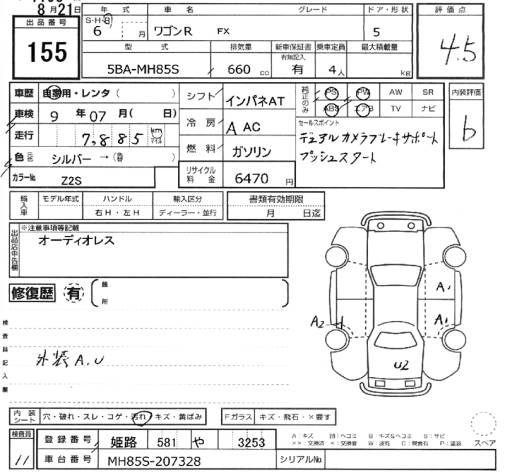 8月21日
出品番号
155
年式 車名 グレード ドア・形状 評価点
S・H・R
6 月 ワゴンR FX 5 4.5
型式 排気量 新車保証書 乗車定員 最大積載量
有無記入
5BA-MH85S 660 cc 有 4人 kg
車歴 自家用・レンタ( )
車検 9年 07月( 日)
走行 7,885 km マイル
色 元色 シルバー →(替 )
カラーNo. Z2S
シフト インパネAT
冷房 A AC
燃料 ガソリン
リサイクル料金 6470円
純正のみ PS PW AW SR
ABS エアB TV ナビ
セールスポイント
デュアルカメラブレーキサポート
プッシュスタート
内装評価
b
輸入車 モデル年式 ハンドル 輸入区分
右H・左H ディーラー・並行
書類有効期限
月 日迄
出品店申告欄
※注意事項等記載
オーディオレス
修復歴 有
箇所
検査員記入欄
外装A.U
A1
A2
A1
U2
内装シート 穴・破れ・スレ・コゲ・汚れ・キズ・黄ばみ
Fガラス キズ・飛石・×要す
検査員
11
登録番号 姫路 581 や 3253
車台番号 MH85S-207328 シリアルNo.
スペア